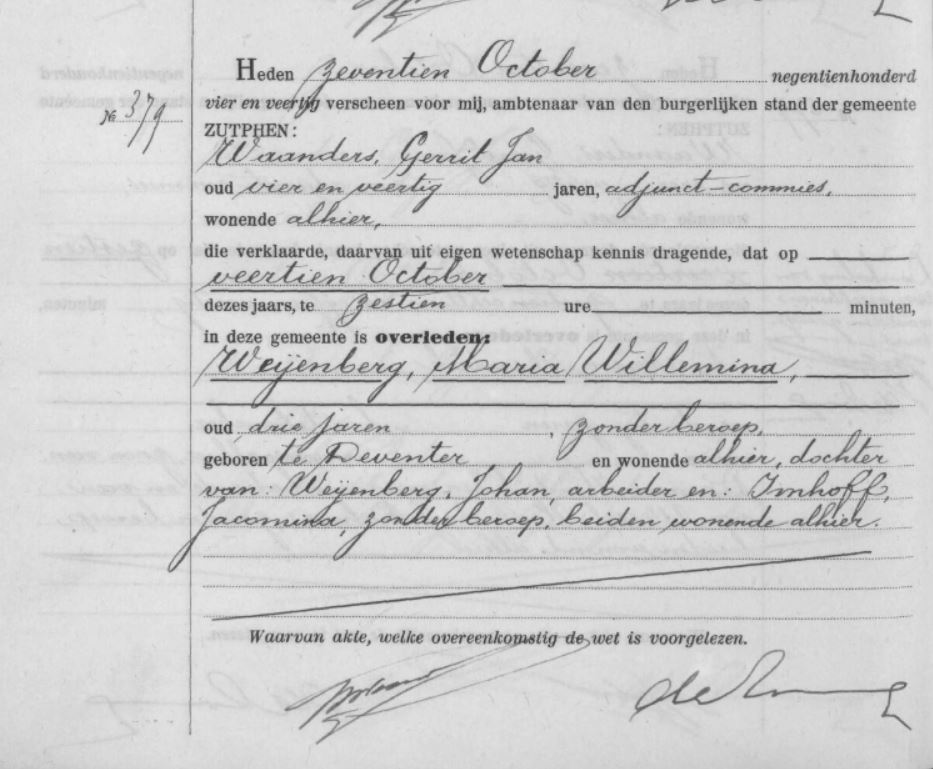 Heden zeventien October negentienhonderd
№ 379
vier en veertig verscheen voor mij, ambtenaar van den burgerlijken stand der gemeente
ZUTPHEN:
Waanders, Gerrit Jan
oud vier en veertig jaren, adjunct-commies,
wonende alhier,
die verklaarde, daarvan uit eigen wetenschap kennis dragende, dat op
veertien October
dezes jaars, te zestien ure minuten,
in deze gemeente is overleden:
Weijenberg, Maria Willemina,
oud drie jaren, zonder beroep,
geboren te Deventer en wonende alhier, dochter
van: Weijenberg, Johan, arbeider en: Imhoff,
Jacomina, zonder beroep, beiden wonende alhier.
Waarvan akte, welke overeenkomstig de wet is voorgelezen.